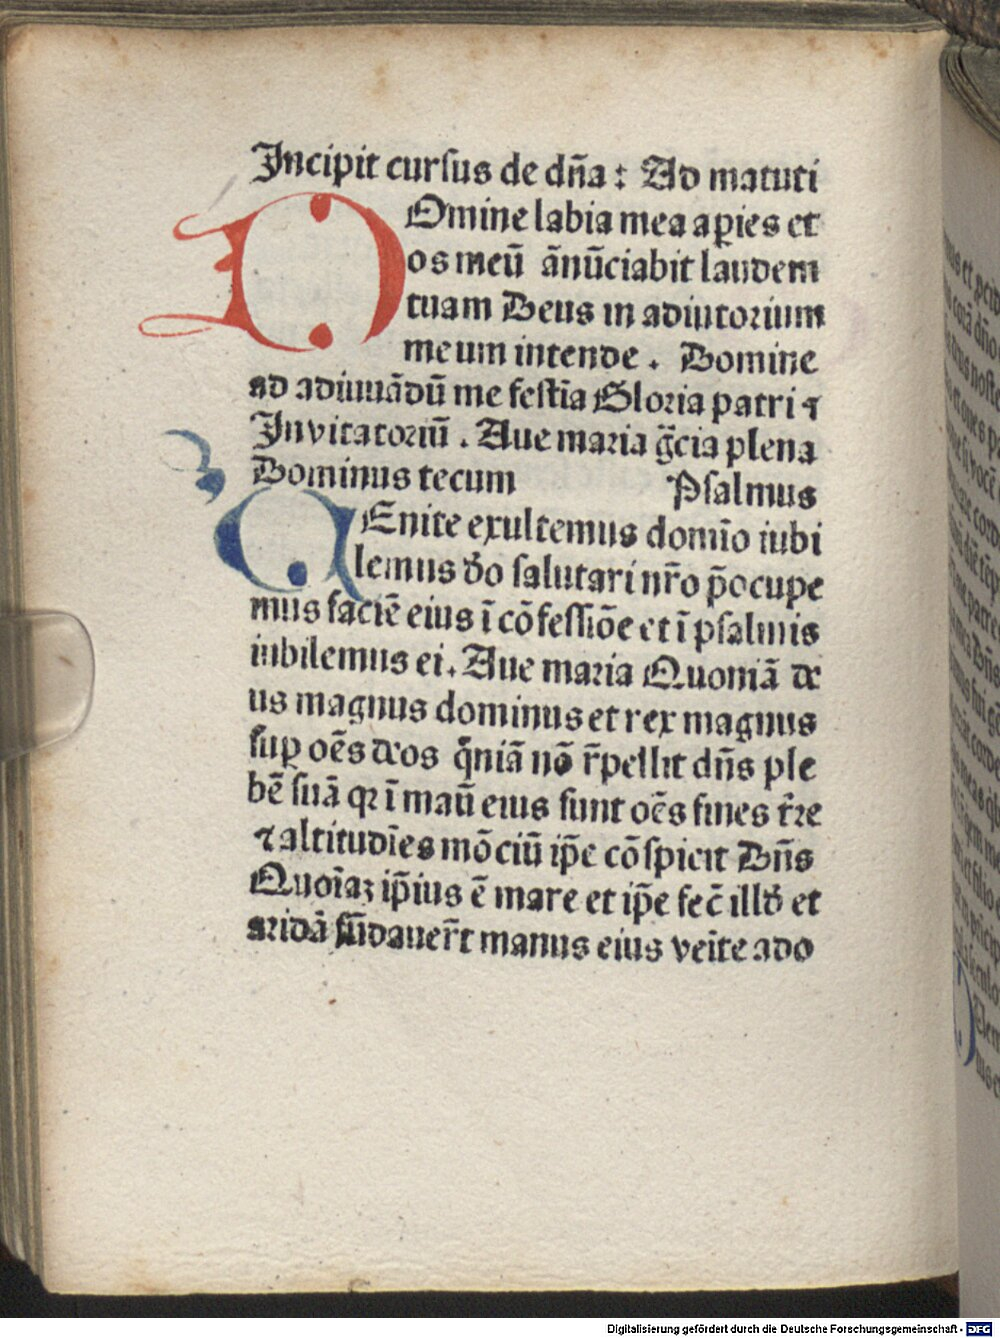 Incipit cursus de dn̄a : Ad matuti
DOmine labia mea ap̱ies et
os meū ān̄uciabit laudem
tuam Deus in adiutorium
meum intende . Domine
ad adiuuādū me festīa Gloria patri ⁊
Inuitatoriū . Aue maria gr̄cia plena
Dominus tecum Psalmus
VEnite exultemus domīo iubi
lemus đo salutari nr̄o p̄ocupe
mus faciē eius ī cōfessiōe et ī psalmis
iubilemus ei . Aue maria Quoniā de
us magnus dominus et rex magnus
suꝑ oēs deos qm̄niā nō r̄pellit dn̄s ple
bē suā qꝛ ī manū eius sunt oēs fines t̄re
⁊ altitudīes mōciū ip̄e cōspicit Dn̄s
Quoīaꝫ ip̄ius ē mare et ip̄e fec̄ illđ et
aridā fūdauer̄t manus eius veīte ado
Digitalisierung gefördert durch die Deutsche Forschungsgemeinschaft - DFG